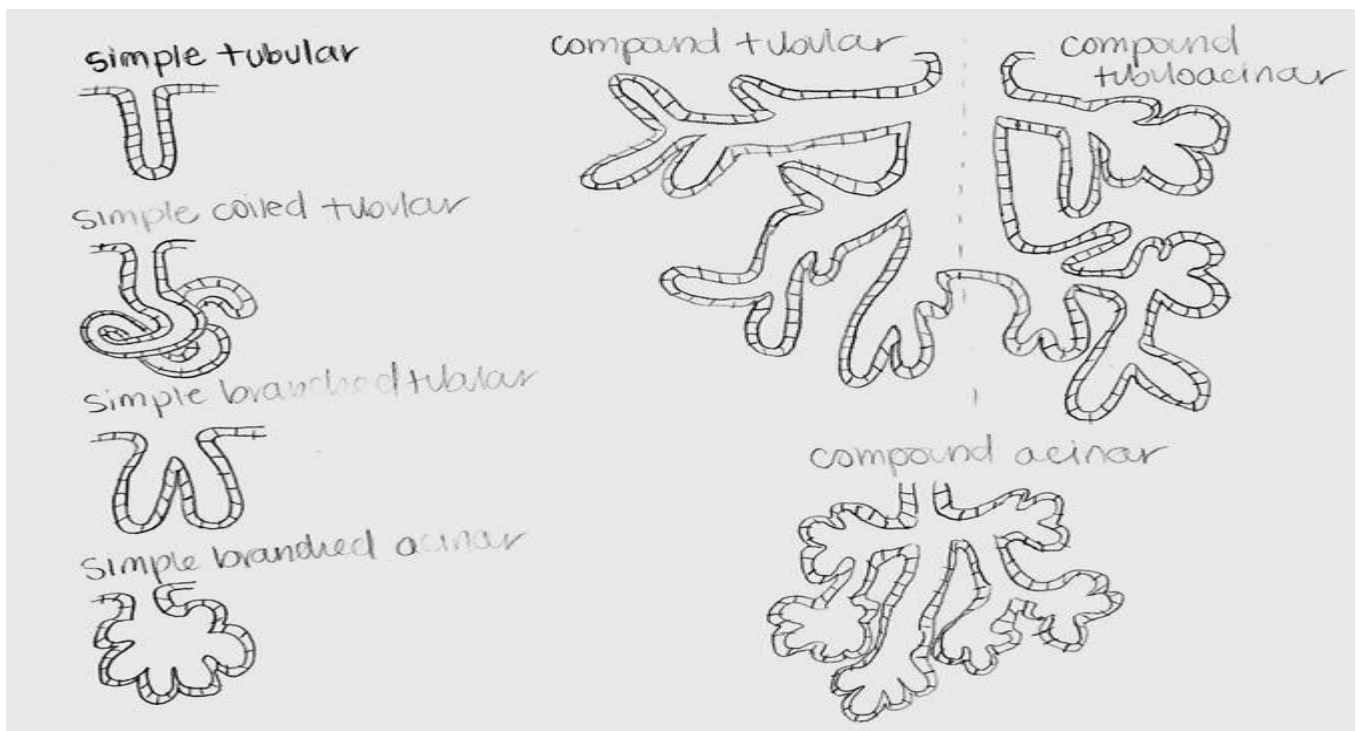 simple tubular
simple coiled tubular
simple branched tubular
simple branched acinar
compound tubular
compound
tubuloacinar
compound acinar